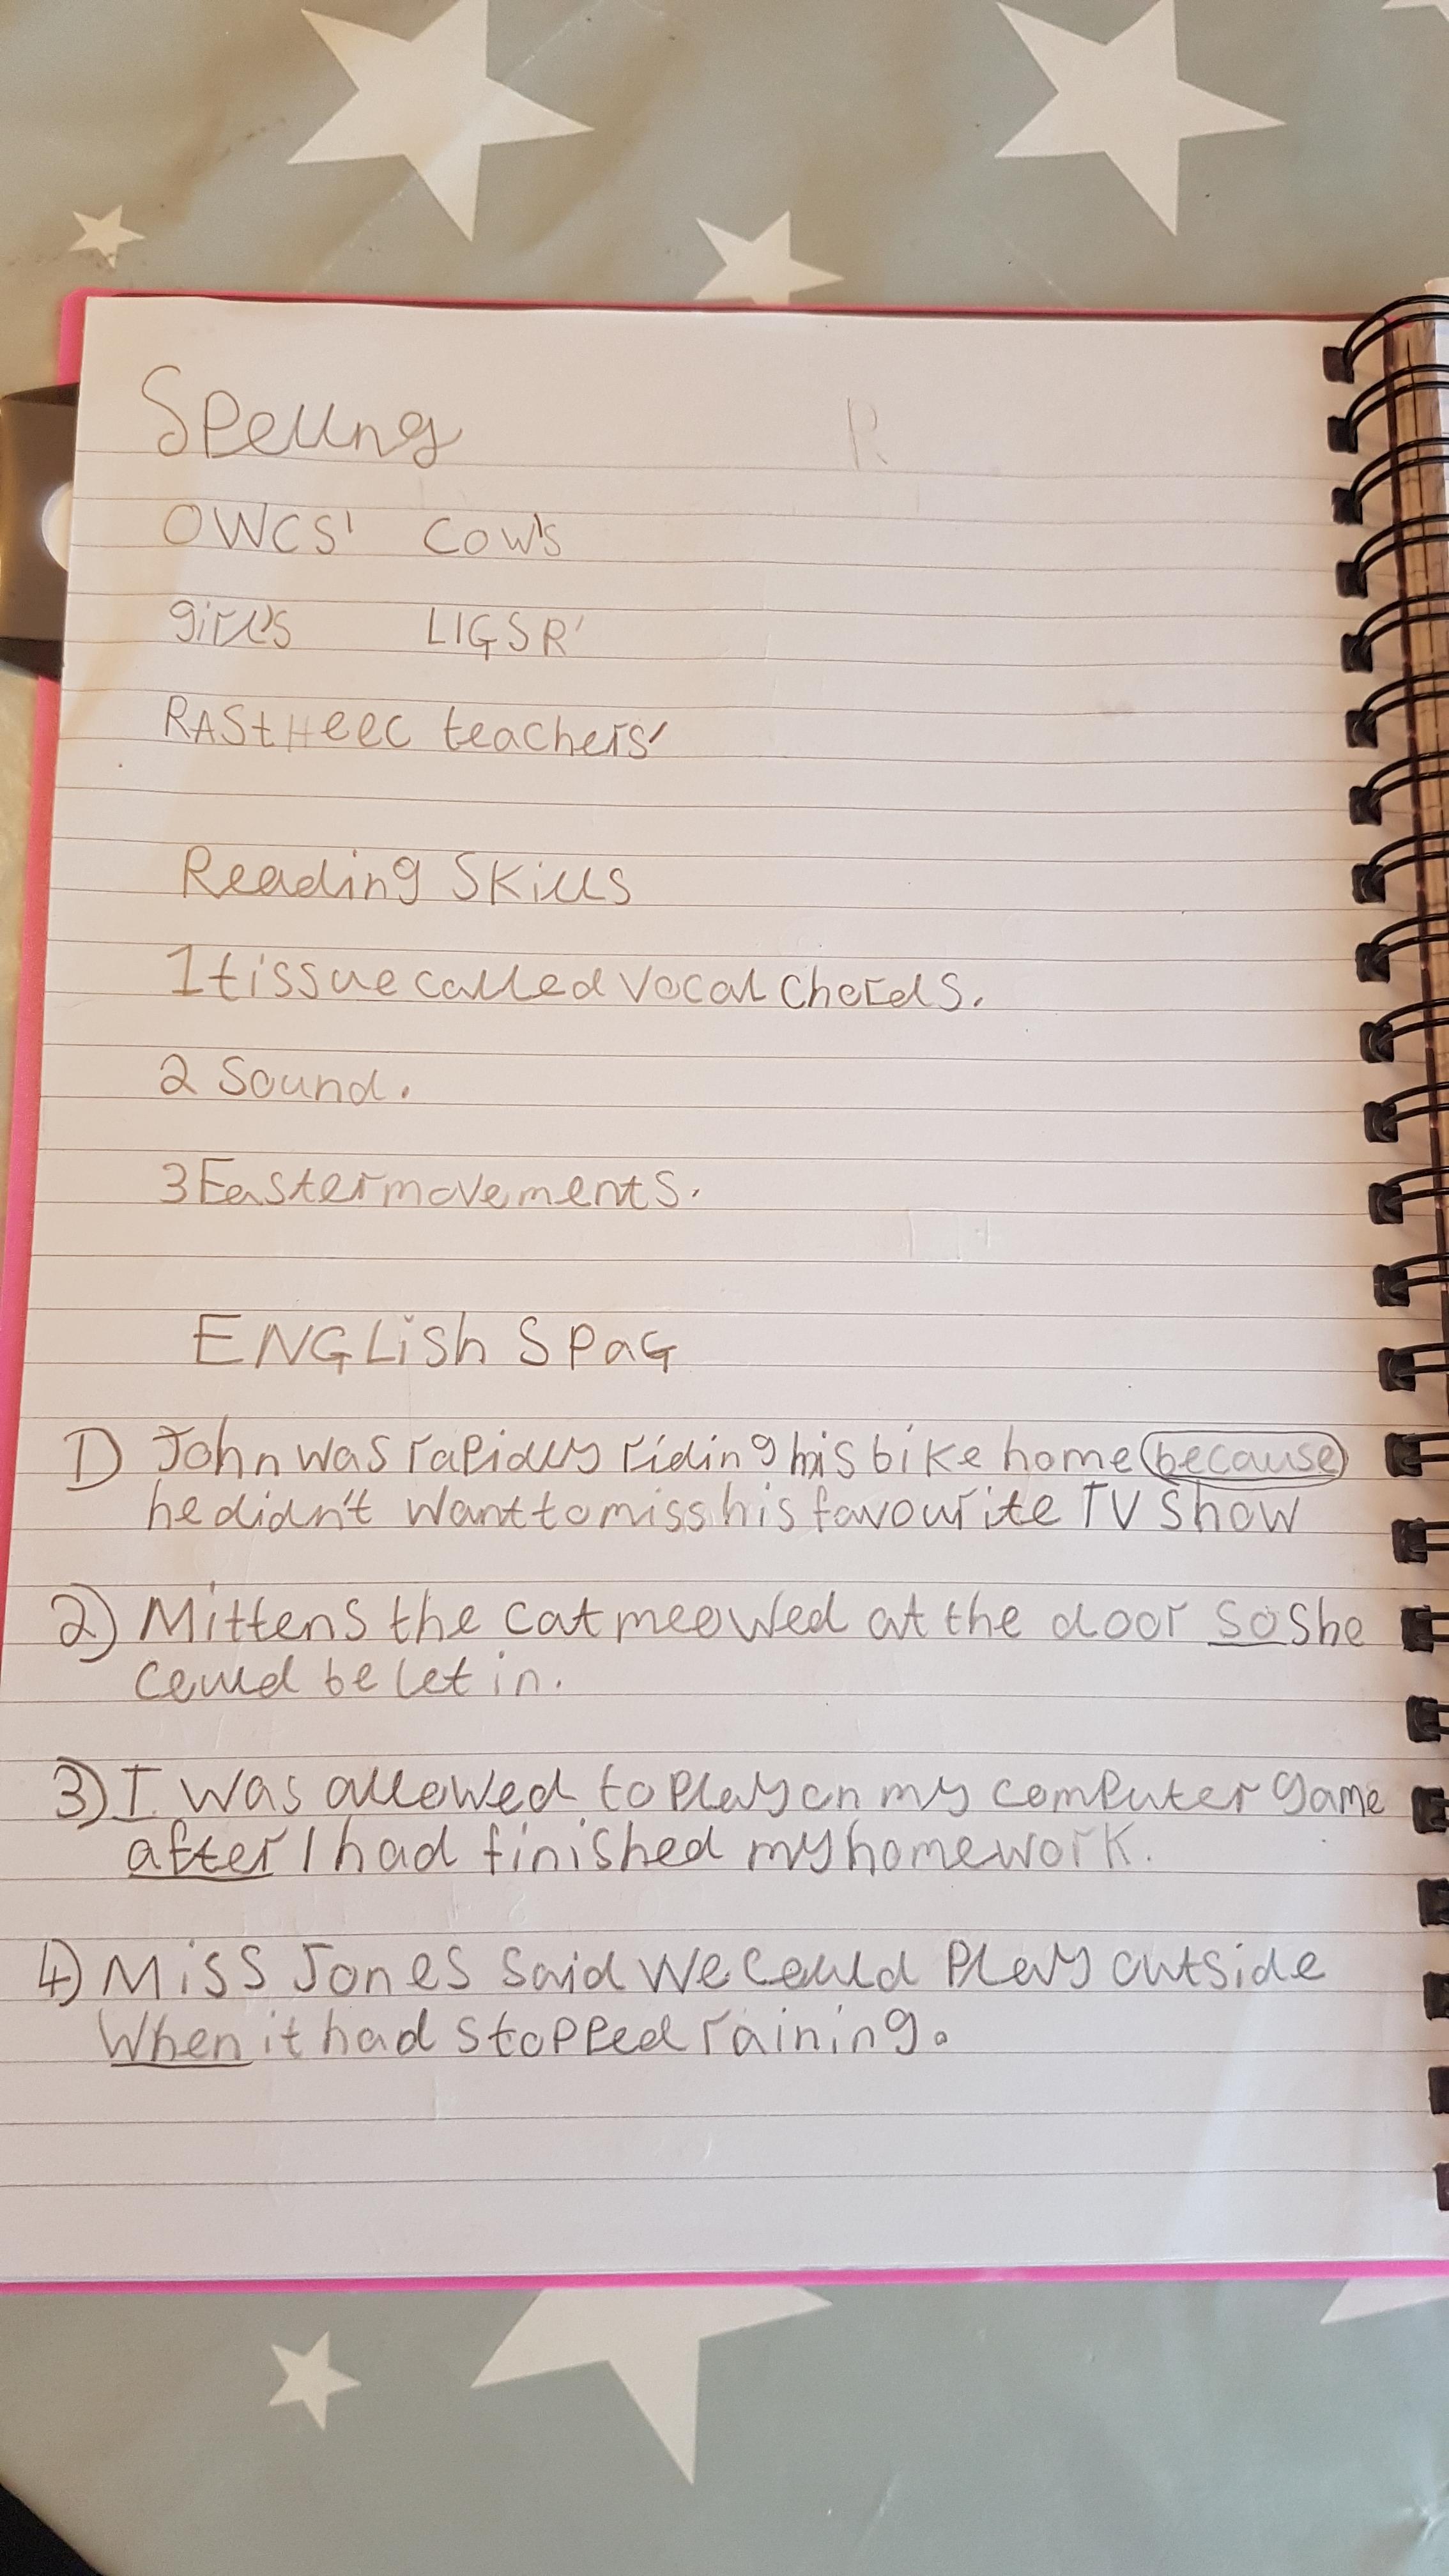 Spelling
OWCS' cow's
girl's LIGSR'
RAStHeec teachers'
Reading Skills
1 tissue called vocal chords.
2 Sound.
3 Easter movements.
ENGLish SPaG
1) John was rapidly riding his bike home because
he didn't want to miss his favourite TV show
2) Mittens the cat meowed at the door so she
could be let in.
3) I was allowed to play on my computer game
after I had finished my homework.
4) Miss Jones said we could play outside
when it had stopped raining.